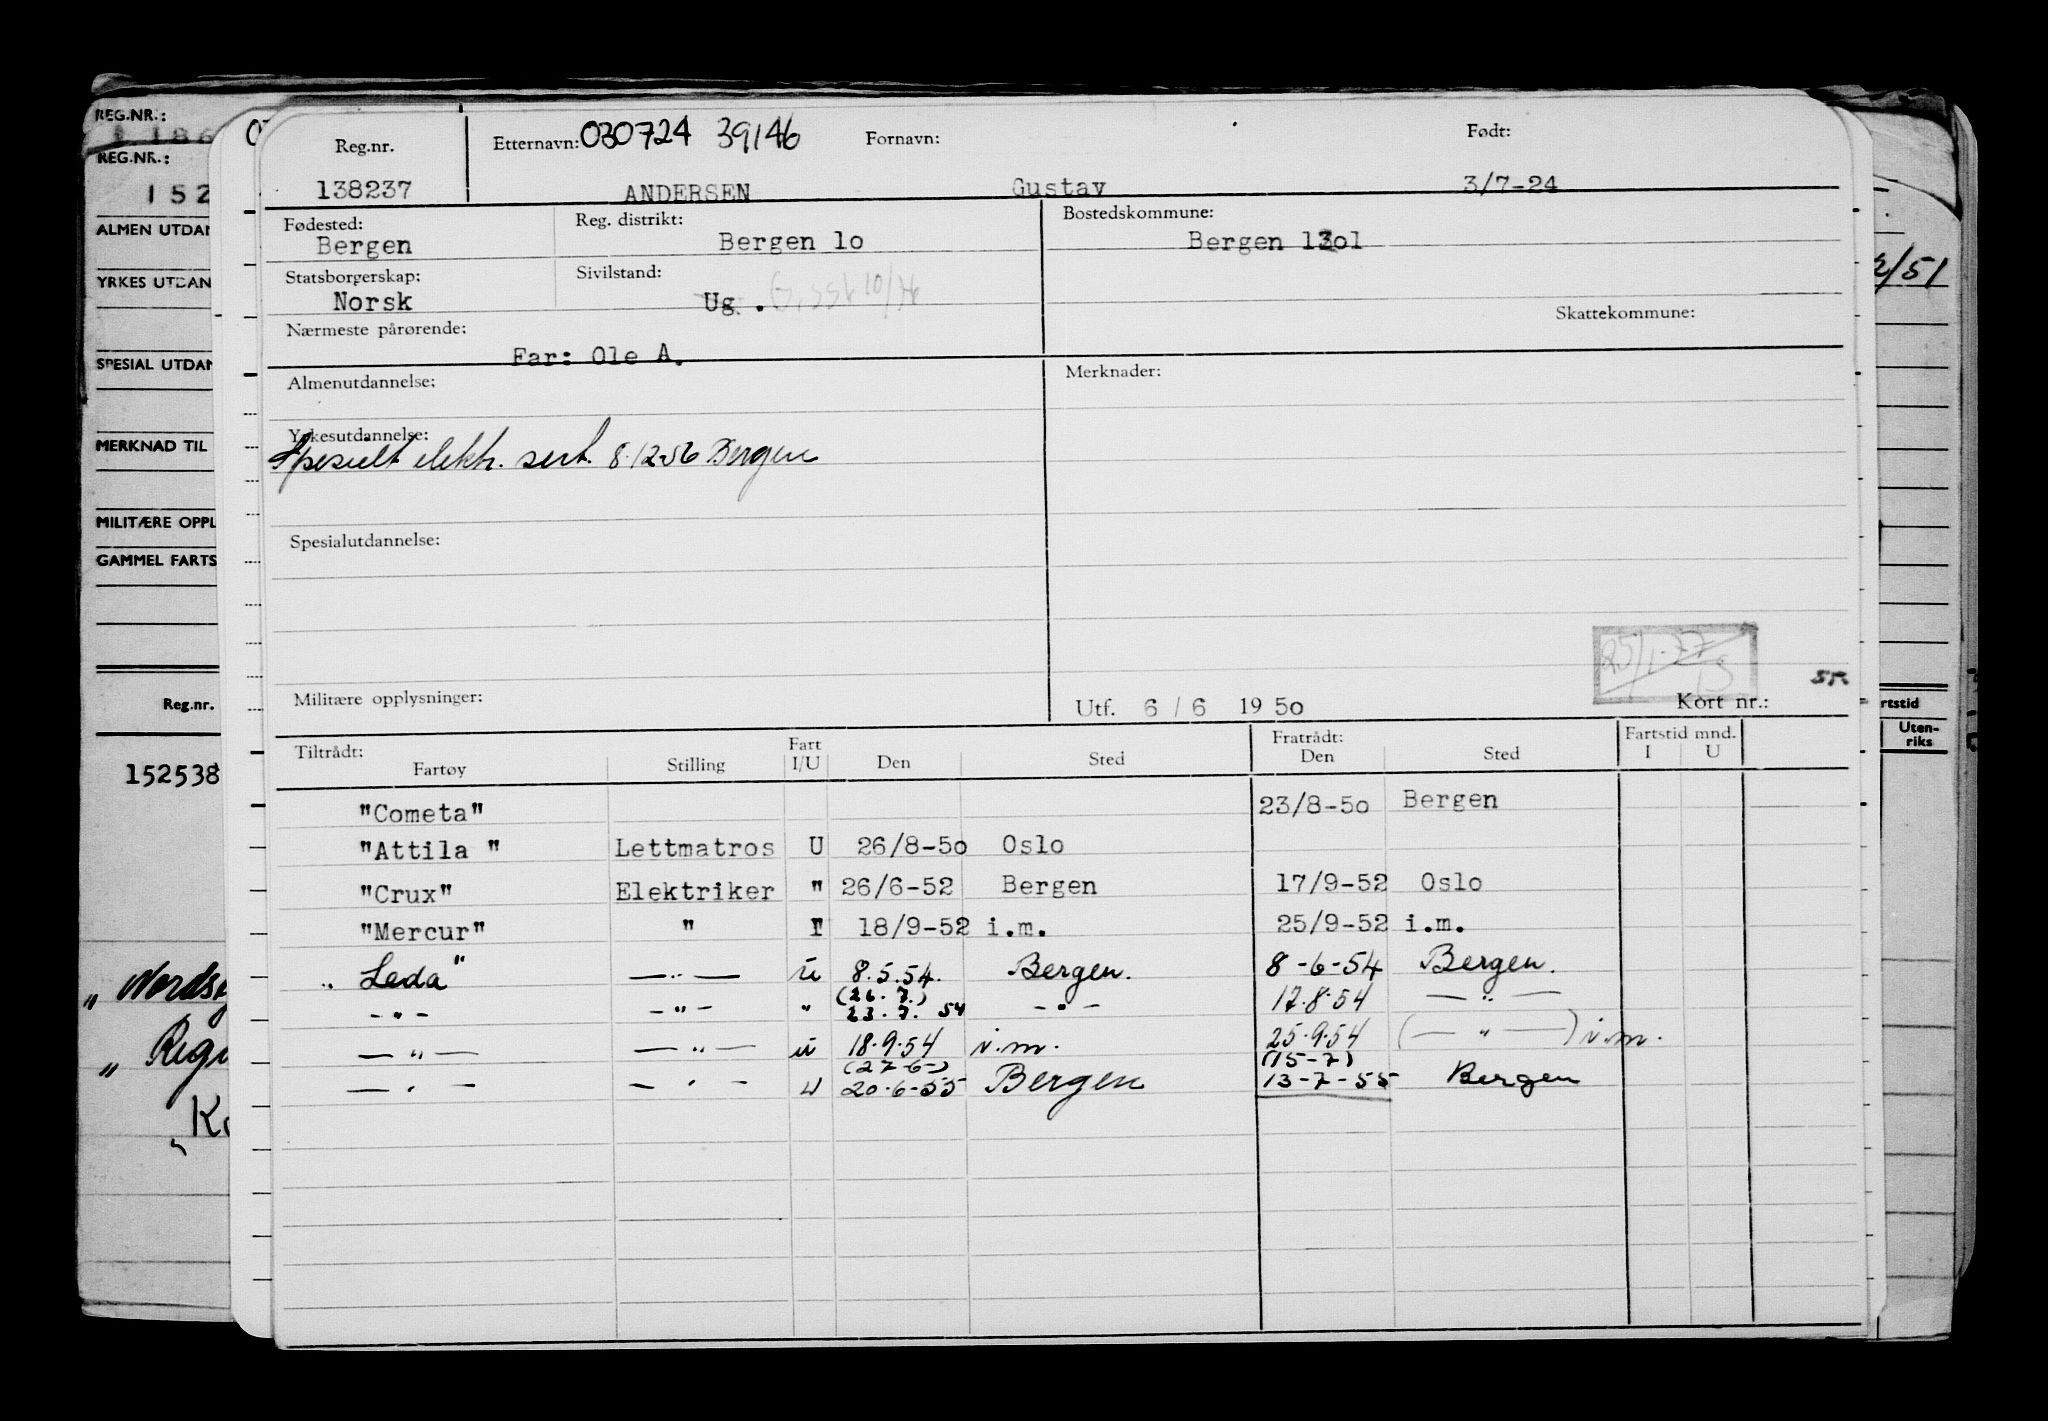 REG.NR.:
REG.NR.:
152
ALMEN UTDAN
YRKES UTDAN
SPESIAL UTDAN
MERKNAD TIL
MILITÆRE OPPL
GAMMEL FARTS
Reg.nr.
152538
2/51
rtstid
Uten-
riks
Reg.nr. Etternavn: 030724 39146 Fornavn: Født:
138237 ANDERSEN Gustav 3/7-24
Fødested: Reg. distrikt: Bostedskommune:
Bergen Bergen lo Bergen 13ol
Statsborgerskap: Sivilstand:
Norsk Ug.
Nærmeste pårørende: Skattekommune:
Far: Ole A.
Almenutdannelse: Merknader:
Yrkesutdannelse:
Spesielt elektr. sert. 8.12.56 Bergen
Spesialutdannelse:
25/1-77
Militære opplysninger: Utf. 6 / 6 19 5o Kort nr.:
Tiltrådt: Fart Fratrådt: Fartstid mnd.
Fartøy Stilling I/U Den Sted Den Sted I U
"Cometa" 23/8-5o Bergen
"Attila " Lettmatros U 26/8-5o Oslo
"Crux" Elektriker " 26/6-52 Bergen 17/9-52 Oslo
"Mercur" " " 18/9-52 i.m. 25/9-52 i.m.
" Leda" — " — u 8.5.54. Bergen. 8-6-54 Bergen.
(26.7.)
- " - - " - " 23.7. 54 - " - 17.8.54 — " —
— " — — " — u 18.9.54 i.m. 25.9.54 (— " —) i.m.
(27-6-) (15-7)
— " — — " — u 20.6-55 Bergen 13-7-55 Bergen